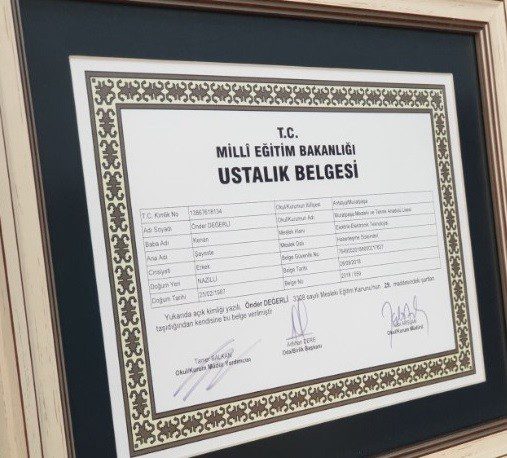 T.C.
MİLLÎ EĞİTİM BAKANLIĞI
USTALIK BELGESİ
T.C. Kimlik No Okul/Kurumun İl/İlçesi Antalya/Muratpaşa
Adı Soyadı Önder DEĞERLİ Okul/Kurumun Adı Muratpaşa Mesleki ve Teknik Anadolu Lisesi
Baba Adı Kenan Meslek Alanı Elektrik-Elektronik Teknolojisi
Ana Adı Meslek Dalı Haberleşme Sistemleri
Cinsiyeti Erkek Belge Güvenlik No
Doğum Yeri NAZİLLİ Belge Tarihi
Doğum Tarihi Belge No
Yukarıda açık kimliği yazılı, Önder DEĞERLİ 3308 sayılı Mesleki Eğitim Kanunu'nun, 28. maddesindeki şartları
taşıdığından kendisine bu belge verilmiştir.
Okul/Kurum Müdür Yardımcısı
Oda/Birlik Başkanı
Okul/Kurum Müdürü